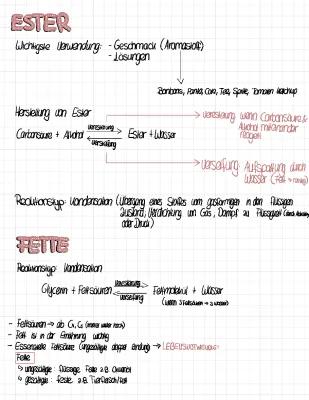 ESTER
Wichtigste Verwendung: - Geschmack (Aromastoff)
- Lösungen
Bonbons, Tee, Tomaten Ketchup
Herstellung von Ester
Carbonsäure + Alkohol Veresterung Ester + Wasser
Verseifung
Veresterung wenn Carbonsäure &
Alkohol miteinander
reagiert
Verseifung: Aufspaltung durch
Wasser (Fett → ranzig)
Reaktionstyp: Kondensation (Übergang eines Stoffes vom gasförmigen in den flüssigen
Zustand, Verdichtung von Gas, Dampf zu Flüssigkeit
oder Druck)
FETTE
Reaktionstyp: Kondensation
Glycerin + Fettsäuren Veresterung Fettmolekül + Wasser
Verseifung
(wenn 3 Fettsäuren → 3 Wasser)
- Fettsäuren → ab
- Fett ist in der Ernährung wichtig
- Essenzielle Fettsäure (ungesättigte doppel Bindung) → LEBENSNOTWENDIG!
Fette
↳ ungesättigte: flüssige Fette z.B. Olivenöl
↳ gesättigte: feste z.B. Tierfleisch/Fett